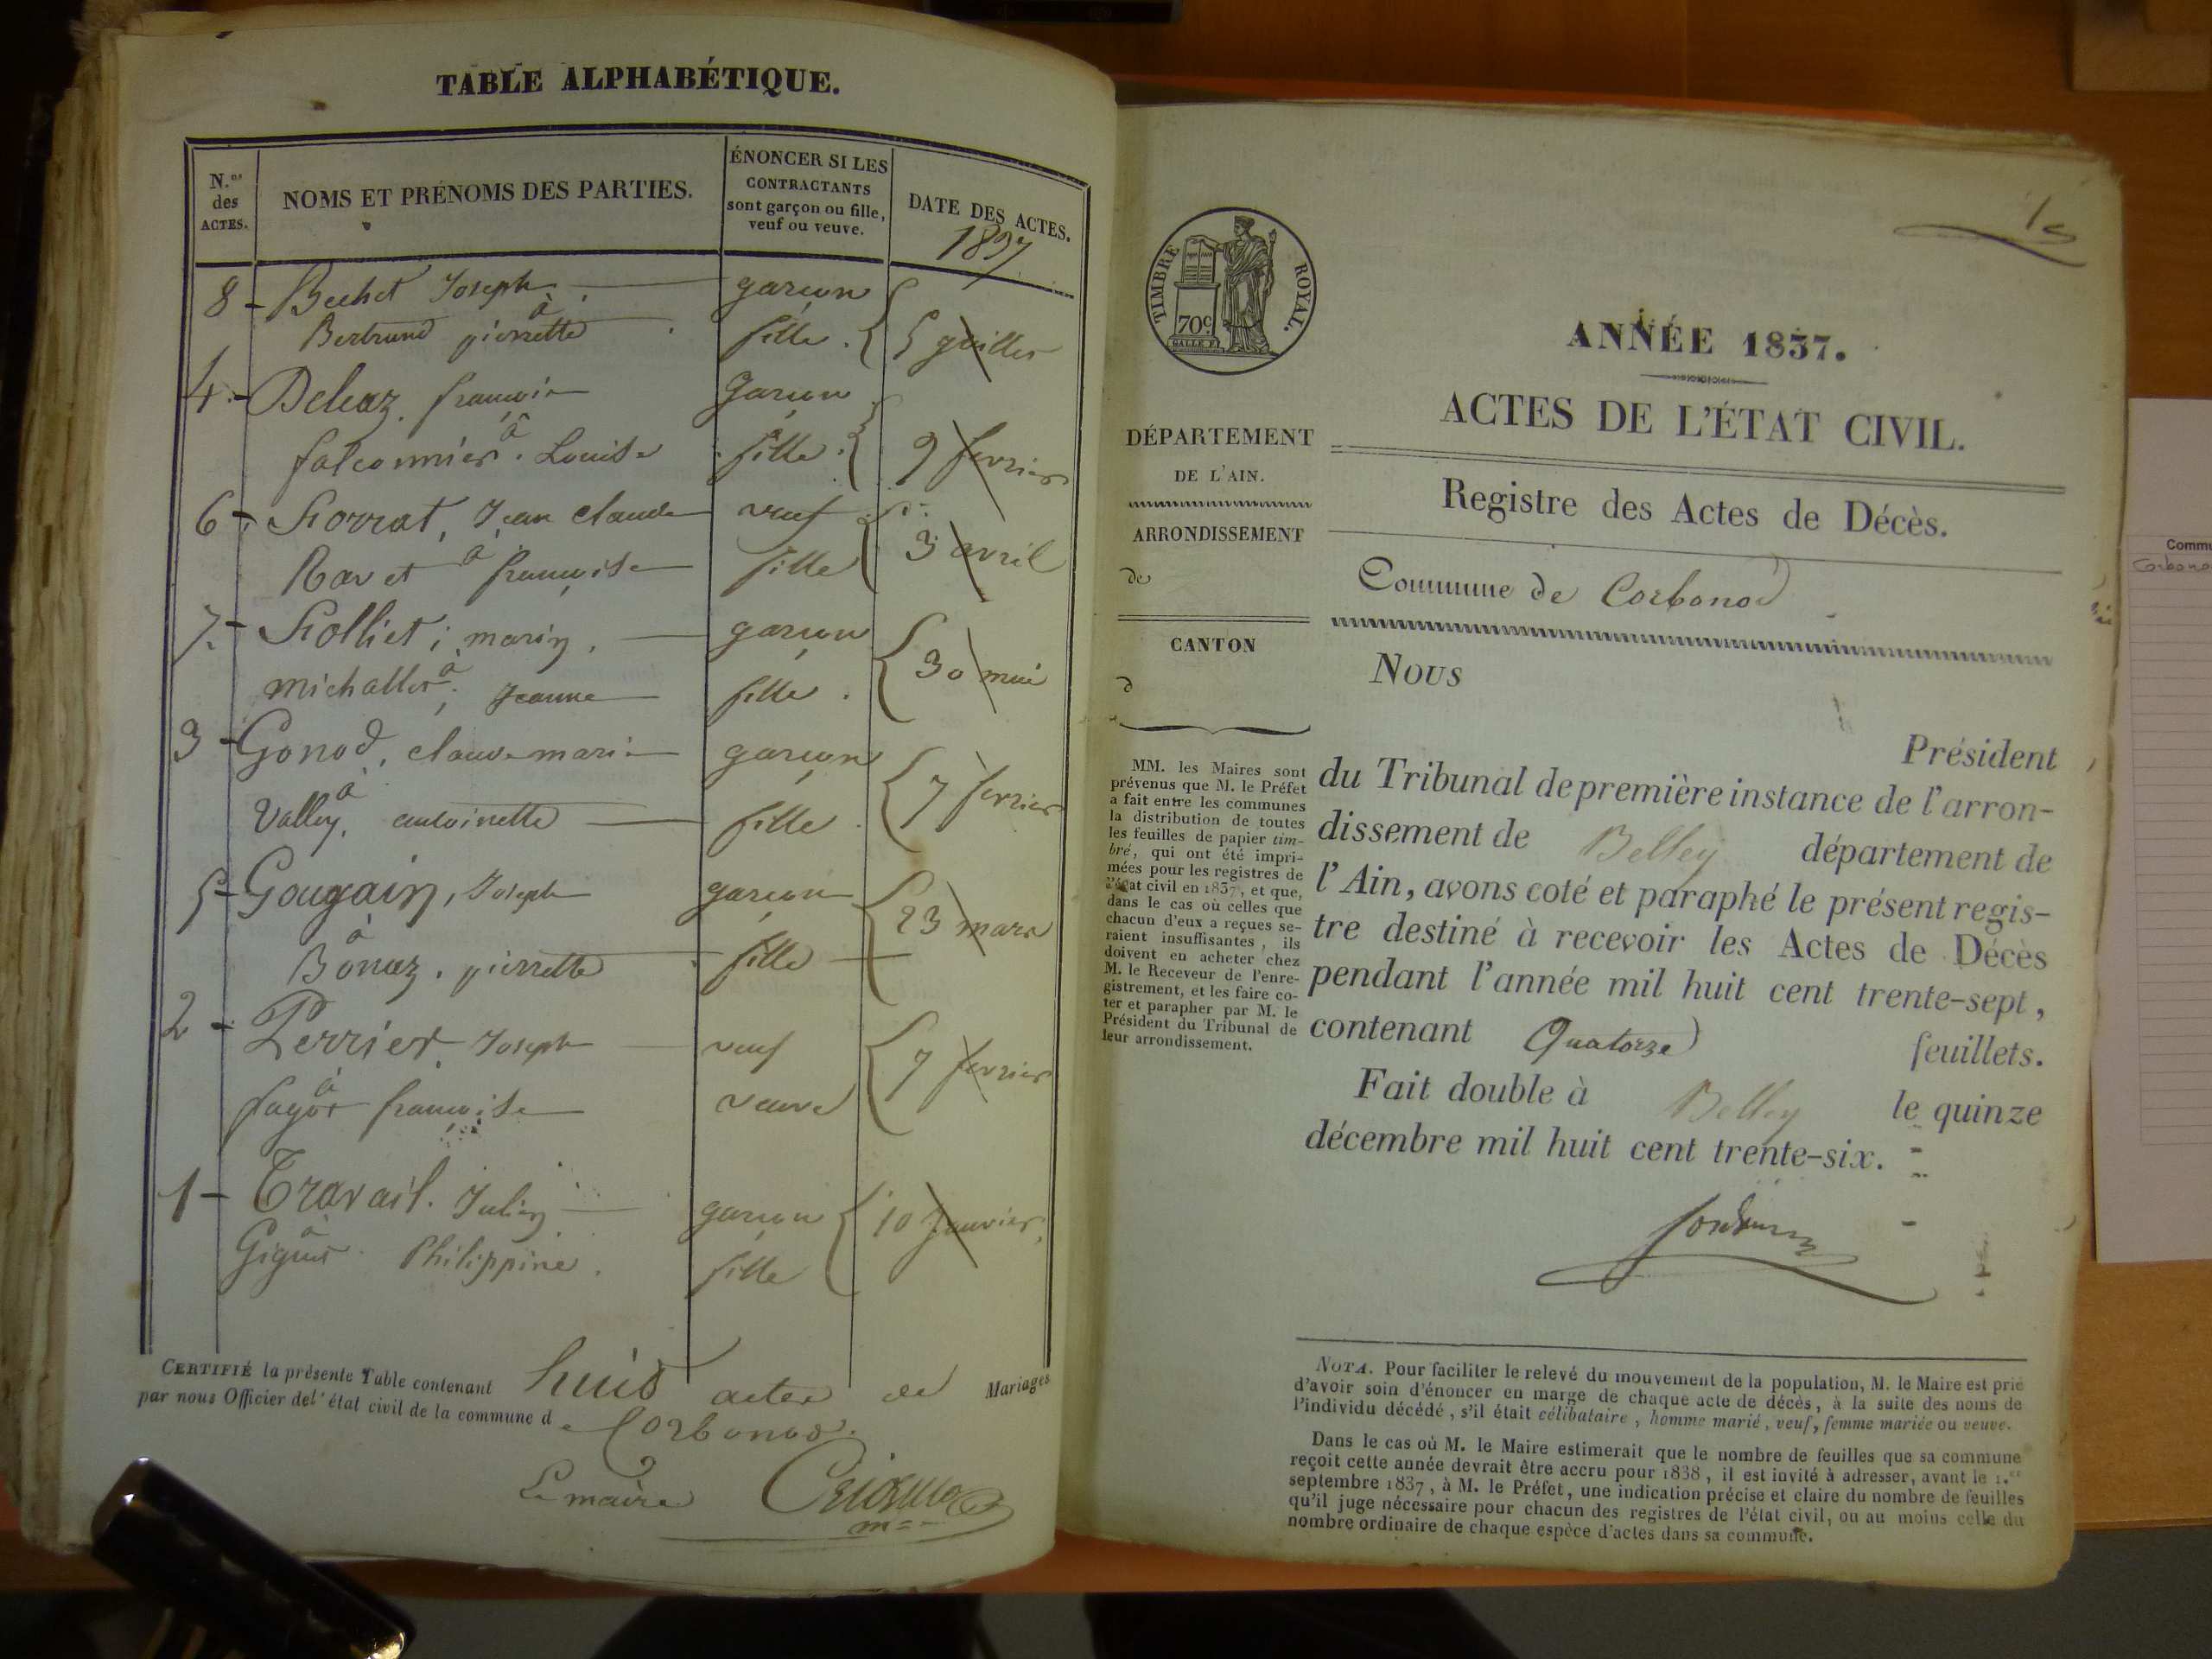 TABLE ALPHABÉTIQUE.
N.os des ACTES.
NOMS ET PRÉNOMS DES PARTIES.
ÉNONCER SI LES CONTRACTANTS sont garçon ou fille, veuf ou veuve.
DATE DES ACTES.
1837
8 - Bechet Joseph garçon
à
Bertrand pierrette fille 5 juillet
4 - Deleaz françois garçon
à
falconnier Louise fille 9 fevrier
6 - Forrat, Jean claude veuf
Ravet à françoise fille 3 avril
7 - Folliet, marin garçon
à
michallet, Jeanne fille 30 mai
3 - Gonod, claude marie garçon
à
Valley, antoinette fille 7 fevrier
5 - Gougain, Joseph garçon
à
Bonaz, pierrette fille 23 mars
2 - Perrier Joseph veuf
à
fagot françoise veuve 7 fevrier
1 - Travail Julien garçon
à
Philippine fille 10 Janvier
CERTIFIÉ la présente Table contenant huit actes de Mariages
par nous Officier de l'état civil de la commune de Corbonod.
Le maire
TIMBRE ROYAL.
70c
GALLE F.
ANNÉE 1837.
ACTES DE L'ÉTAT CIVIL.
Registre des Actes de Décès.
Commune de Corbonod
DÉPARTEMENT
DE L'AIN.
ARRONDISSEMENT
de
CANTON
d
MM. les Maires sont
prévenus que M. le Préfet
a fait entre les communes
la distribution de toutes
les feuilles de papier tim-
bré, qui ont été impri-
mées pour les registres de
l'état civil en 1837, et que,
dans le cas où celles que
chacun d'eux a reçues se-
raient insuffisantes, ils
doivent en acheter chez
M. le Receveur de l'enre-
gistrement, et les faire co-
ter et parapher par M. le
Président du Tribunal de
leur arrondissement.
Nous
Président
du Tribunal de première instance de l'arron-
dissement de Belley département de
l'Ain, avons coté et paraphé le présent regis-
tre destiné à recevoir les Actes de Décès
pendant l'année mil huit cent trente-sept,
contenant Quatorze feuillets.
Fait double à Belley le quinze
décembre mil huit cent trente-six.
NOTA. Pour faciliter le relevé du mouvement de la population, M. le Maire est prié
d'avoir soin d'énoncer en marge de chaque acte de décès, à la suite des noms de
l'individu décédé, s'il était célibataire, homme marié, veuf, femme mariée ou veuve.
Dans le cas où M. le Maire estimerait que le nombre de feuilles que sa commune
reçoit cette année devrait être accru pour 1838, il est invité à adresser, avant le 1.er
septembre 1837, à M. le Préfet, une indication précise et claire du nombre de feuilles
qu'il juge nécessaire pour chacun des registres de l'état civil, ou au moins celle du
nombre ordinaire de chaque espèce d'actes dans sa commune.